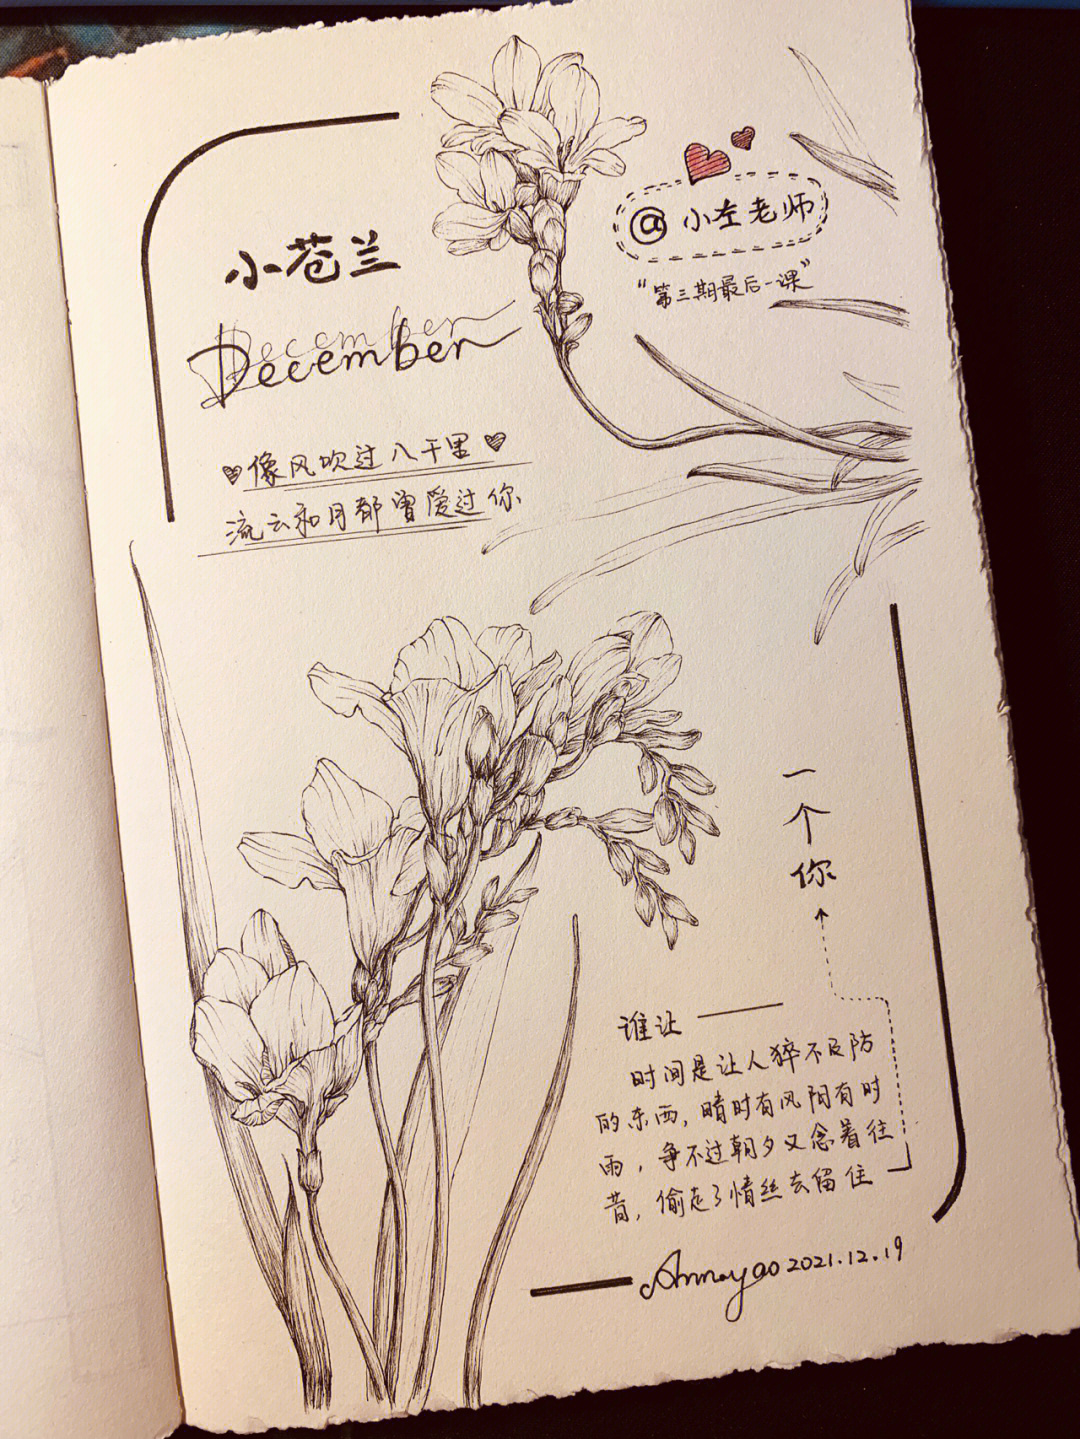 @小左老师
“第三期最后一课”
小苍兰
December
像风吹过八千里
流云和月都曾爱过你
一个你
谁让
时间是让人猝不及防
的东西，晴时有风阴有时
雨，争不过朝夕又念着往
昔，偷走了情丝去留住
Annayao 2021.12.19